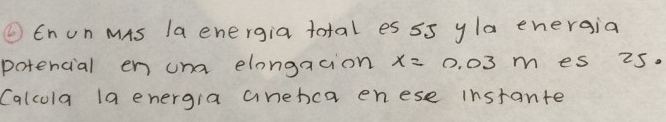 ⑥ En un MAS la energia total es 5J y la energia
potencial en una elongacion x= 0.03 m es 2J.
Calcula la energia cinetica en ese instante